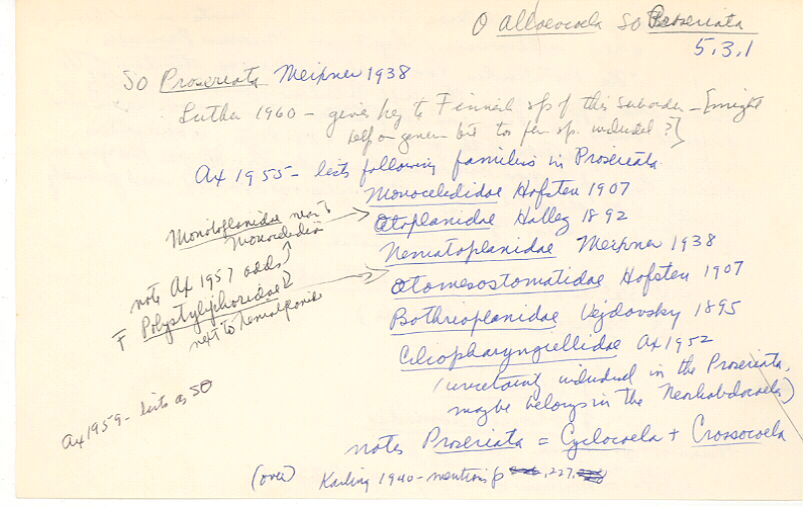 O Alloeocoela SO Proseriata
5.3.1
SO Proseriata Meixner 1938
Luther 1960 - gives key to Finnish spp of this suborder - [might
help on genera but too few sp. included?]
Ax 1955 - lists following families in Proseriata
Monocelididae Hofsten 1907
Otoplanidae Hallez 1892
Nematoplanidae Meixner 1938
Otomesostomatidae Hofsten 1907
Bothrioplanidae Vejdovsky 1895
Ciliopharyngiellidae Ax 1952
(uncertainly included in the Proseriata,
maybe belongs in the Neorhabdocoela)
notes Proseriata = Cyclocoela + Crossocoela
Monotoplanidae next to
Monocelidia
note Ax 1957 adds
F Polystyliphoridae
next to Nematoplanidae
Ax 1959 - lists as SO
(over) Karling 1940 - mentions p 227